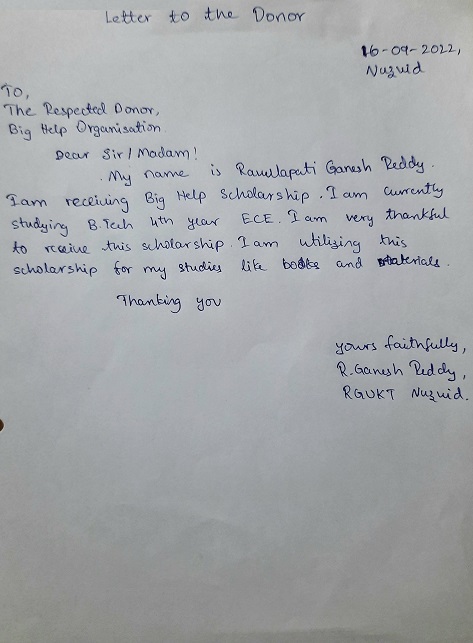 Letter to the Donor
16-09-2022,
Nuzvid
To,
The Respected Donor,
Big Help Organisation.
Dear Sir/Madam!
My name is Ravulapati Ganesh Reddy.
I am receiving Big Help Scholarship. I am currently
studying B.Tech 4th year ECE. I am very thankful
to receive this scholarship. I am utilizing this
scholarship for my studies like books and materials.
Thanking you
yours faithfully,
R. Ganesh Reddy,
RGUKT Nuzvid.